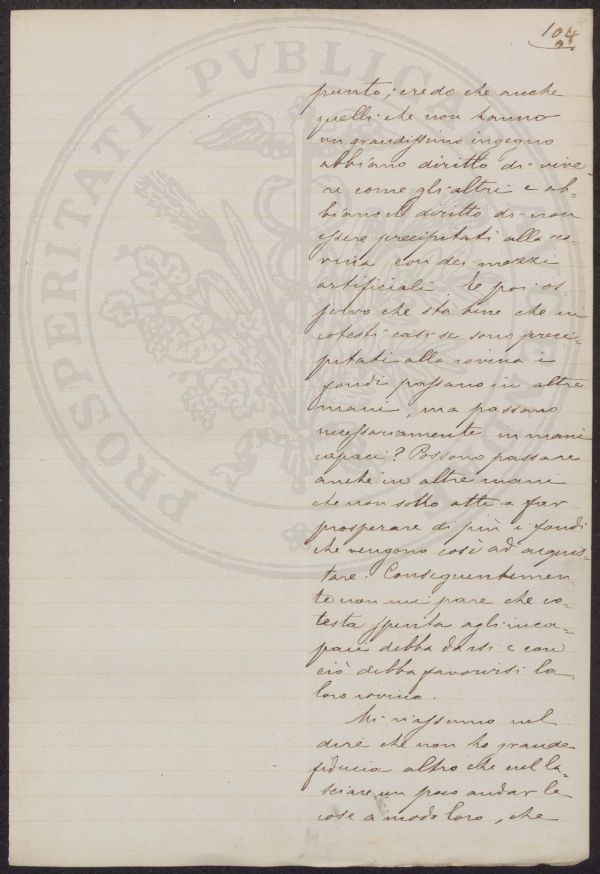 104
2.
punto; credo che anche
quelli che non hanno
un grandissimo ingegno
abbiano diritto di vive-
re come gli altri e ab-
biano il diritto di non
essere precipitati alla ro-
vina con dei mezzi
artificiali. E poi os
servo che sta bene che in
cotesti casi se sono preci-
pitati alla rovina i
fondi passano in altre
mani, ma passano
necessariamente in mani
capaci? Possono passare
anche in altre mani
che non sotto atte a far
prosperare di più i fondi
che vengono così ad acquis-
tare. Conseguentemen-
te non mi pare che co-
testa spinta agli inca-
paci debba darsi e con
ciò debba favorirsi la
loro rovina.
Mi riassumo nel
dire che non ho grande
fiducia altro che nel la-
sciare un poco andar le
cose a modo loro, che
PROSPERITATI PVBLICAE